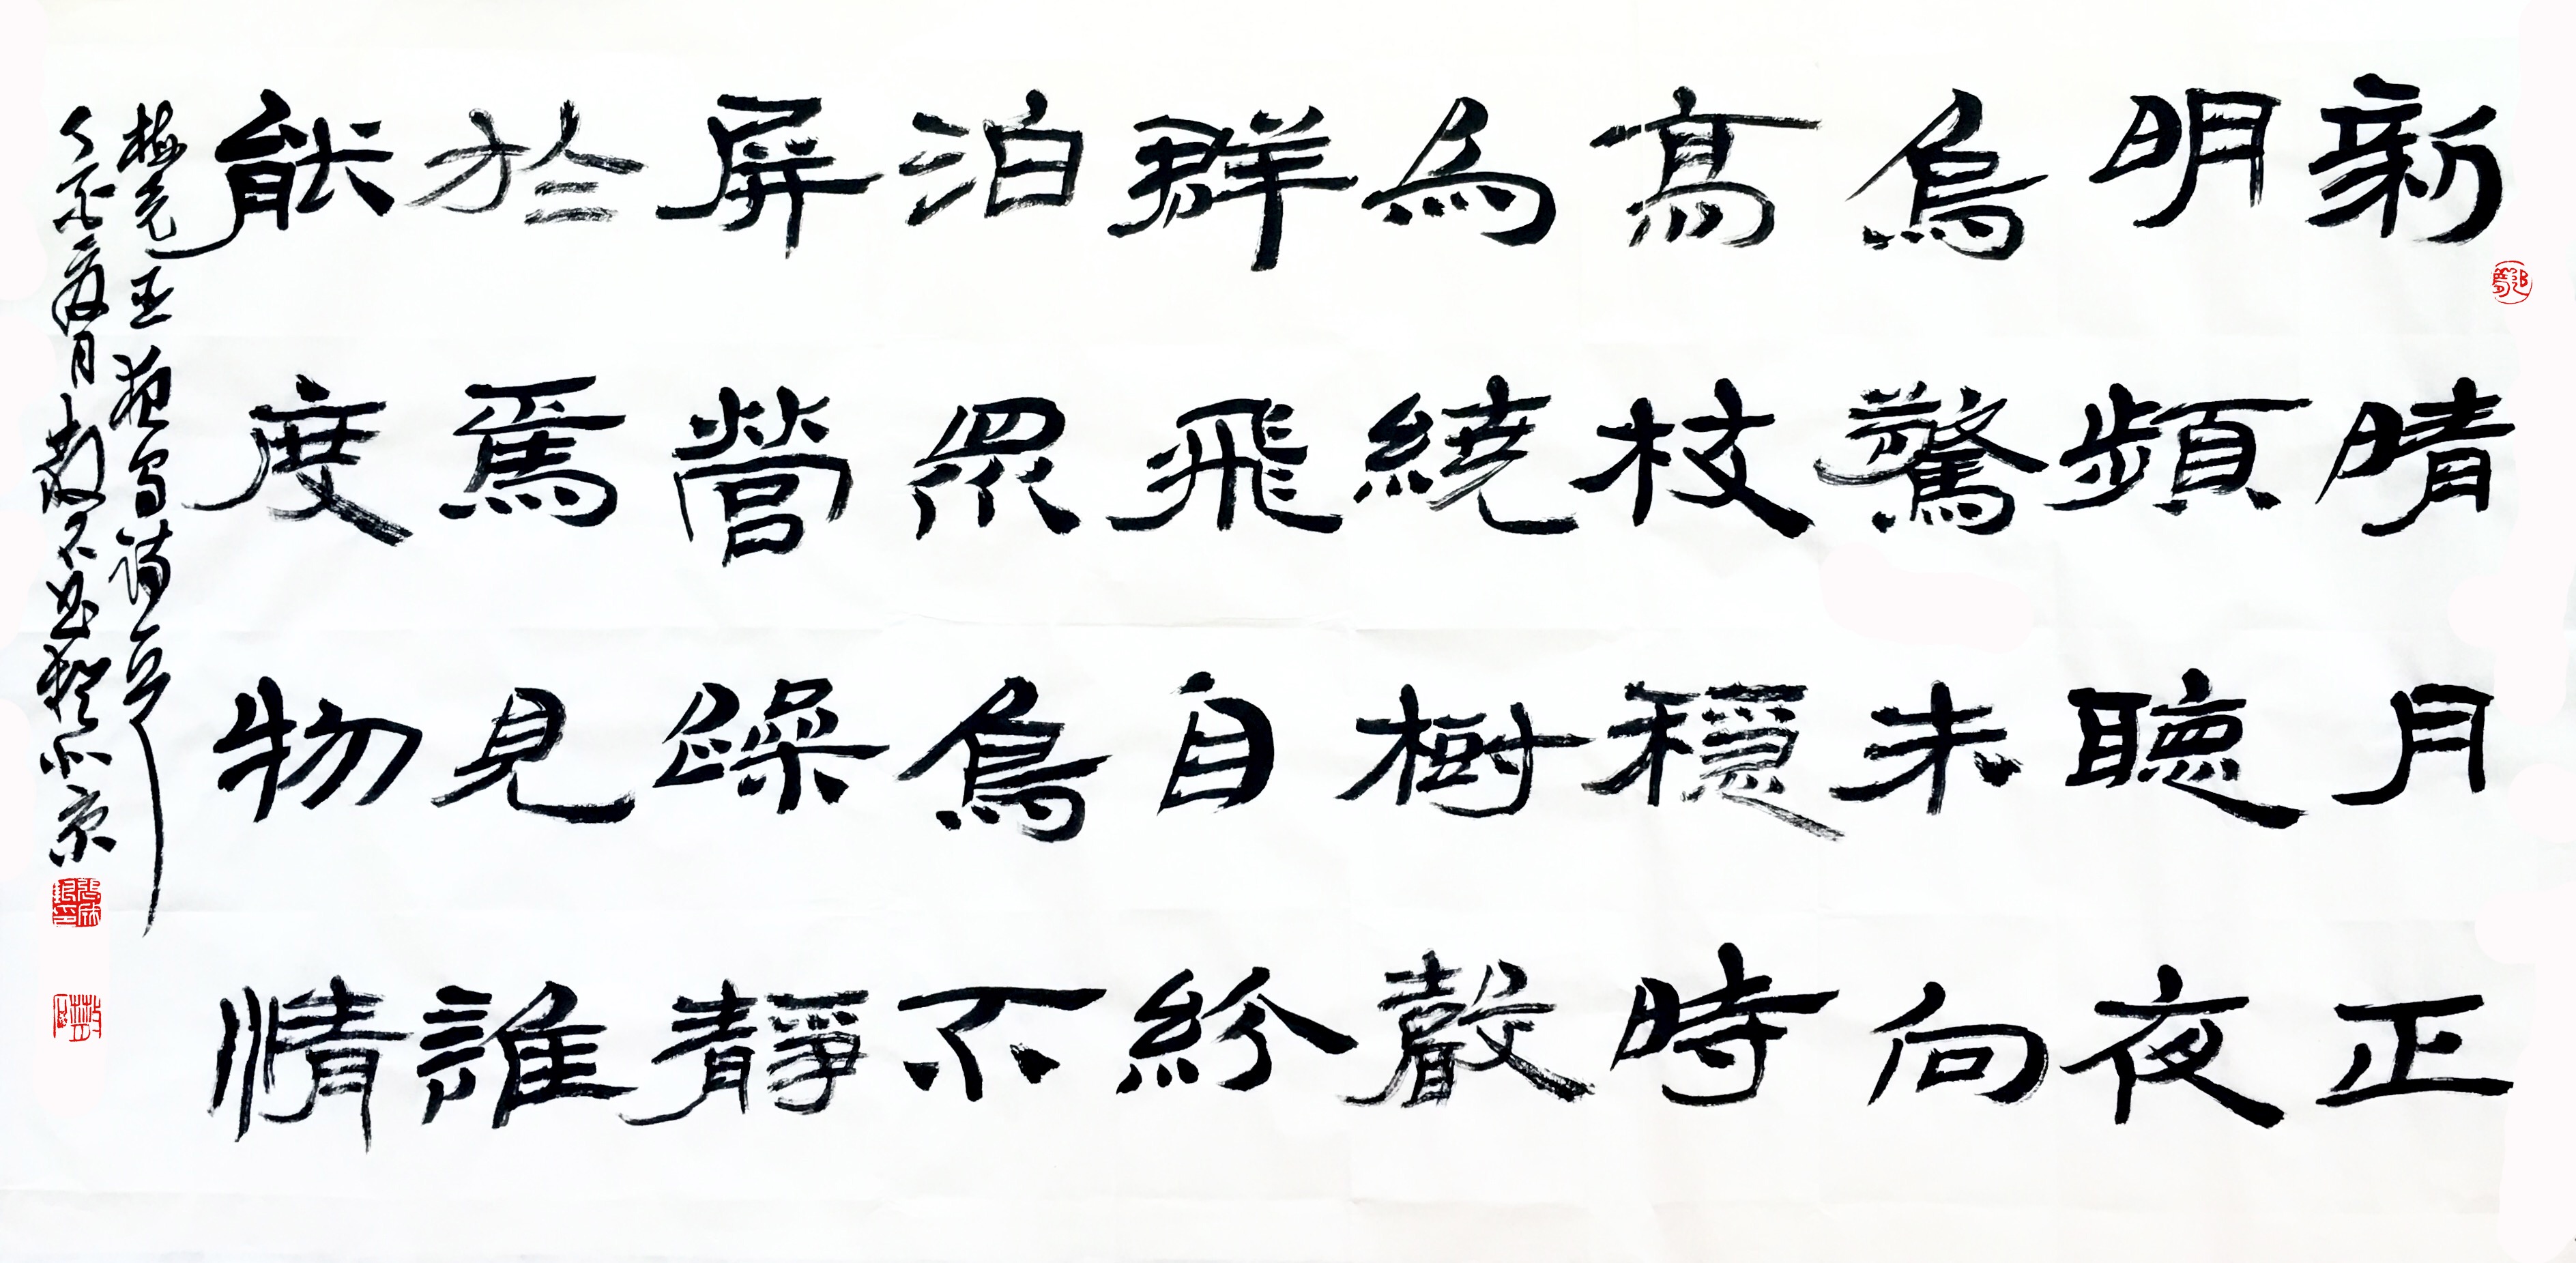 新晴月正
明頻聽夜
烏驚未向
高枝穩時
為繞樹聲
群飛自紛
泊眾鳥不
屏營躁靜
於焉見誰
能度物情
梅堯臣夜烏詩
月 於北京